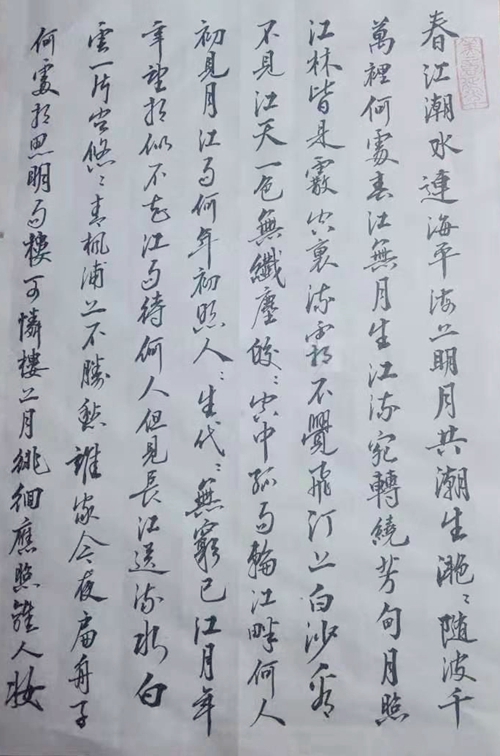 春江潮水連海平海上明月共潮生灔〻隨波千
萬裡何處春江無月生江流宛轉繞芳甸月照
江林皆是霰空裏流霜不覺飛汀上白沙看
不見江天一色無纖塵皎〻空中孤月輪江畔何人
初見月江月何年初照人〻生代〻無窮已江月年
年望相似不知江月待何人但見長江送流水白
雲一片去悠〻青楓浦上不勝愁誰家今夜扁舟子
何處相思明月樓可憐樓上月徘徊應照離人妝